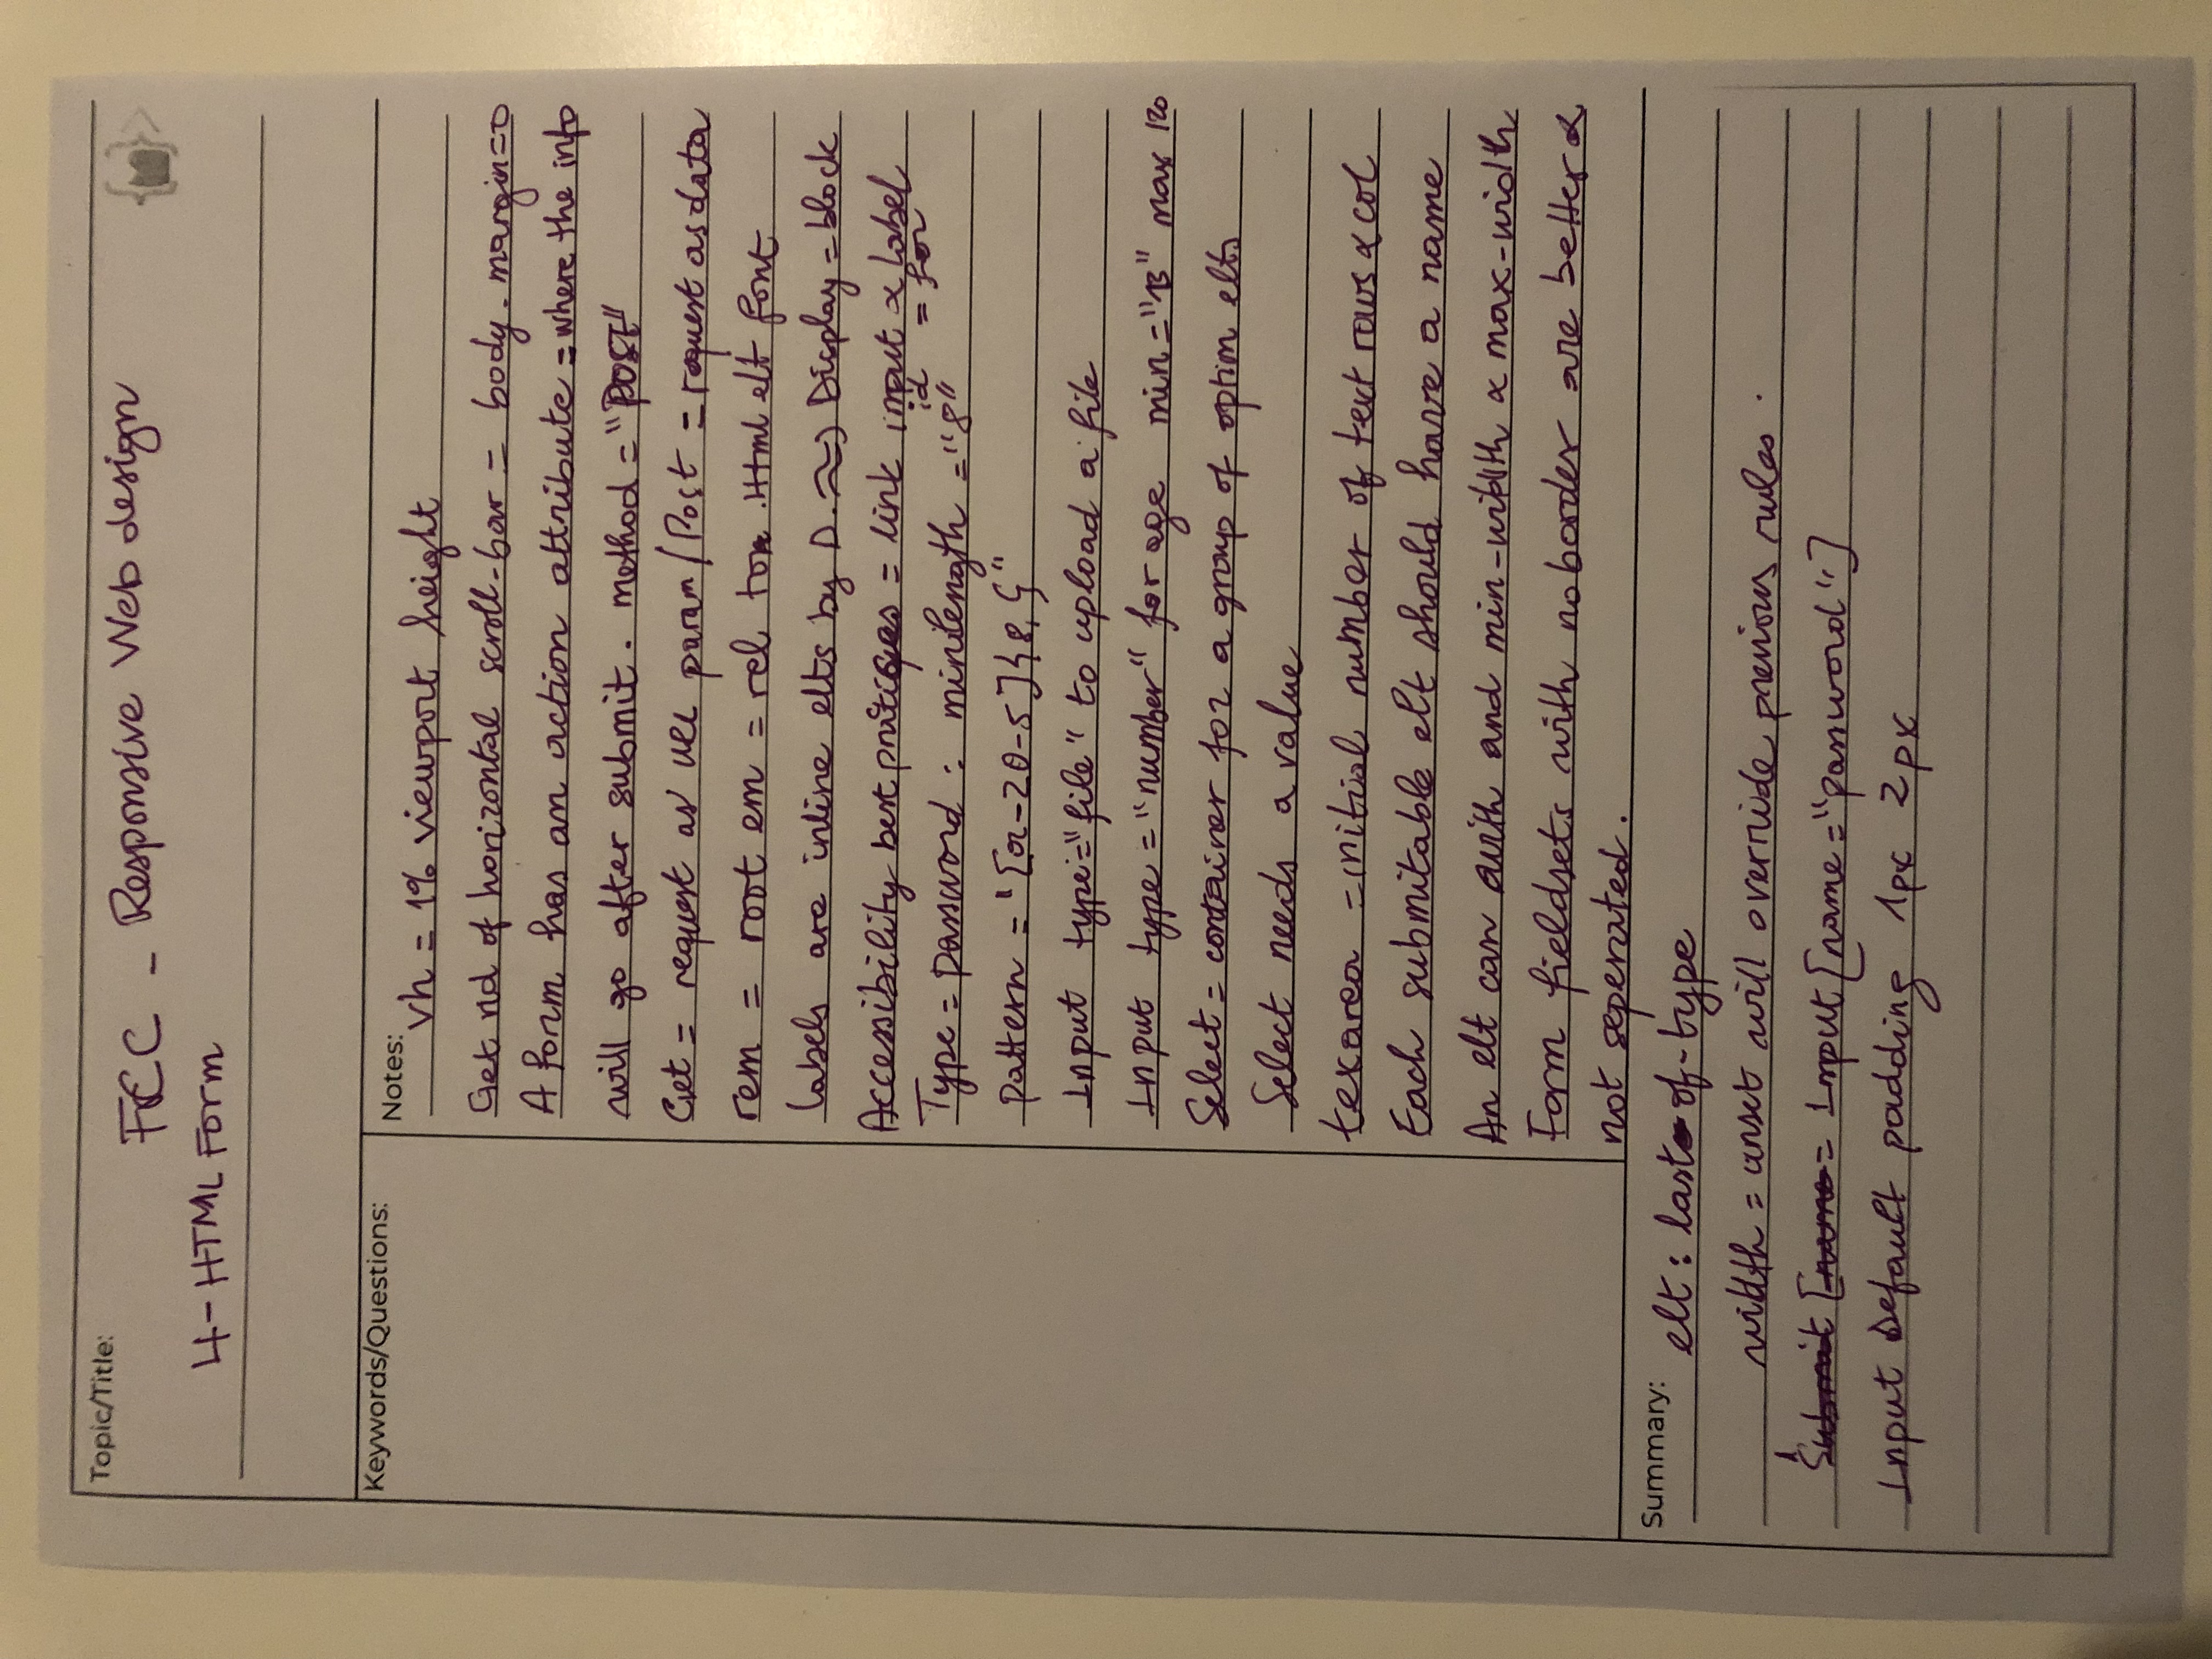 Topic/Title:
FCC - Responsive Web design
4- HTML Form
Keywords/Questions:
Notes:
vh = 1% viewport height
Get rid of horizontal scroll-bar = body. margin=0
A form has an action attribute = where the info
will go after submit. method = "POST"
Get = request as URL param / Post = request as data
rem = root em = rel to Html elt font
labels are inline elts by D. => Display = block
Accessibility best pratiques = link input & label
id = for
Type = password : minlength = "8"
pattern = "[a-z0-5]{8,}"
Input type="file" to upload a file
Input type = "number" for age min = "13" max 120
Select = container for a group of option elts
Select needs a value
texarea = initial number of text rows & col
Each submitable elt should have a name
An elt can with and min-width & max-width
Form fieldsets with no border are better &
not seperated.
Summary:
elt : last-of-type
width = unset will override previous rules.
Submit [name = Input [name = "password"]
Input Default padding 1px 2px